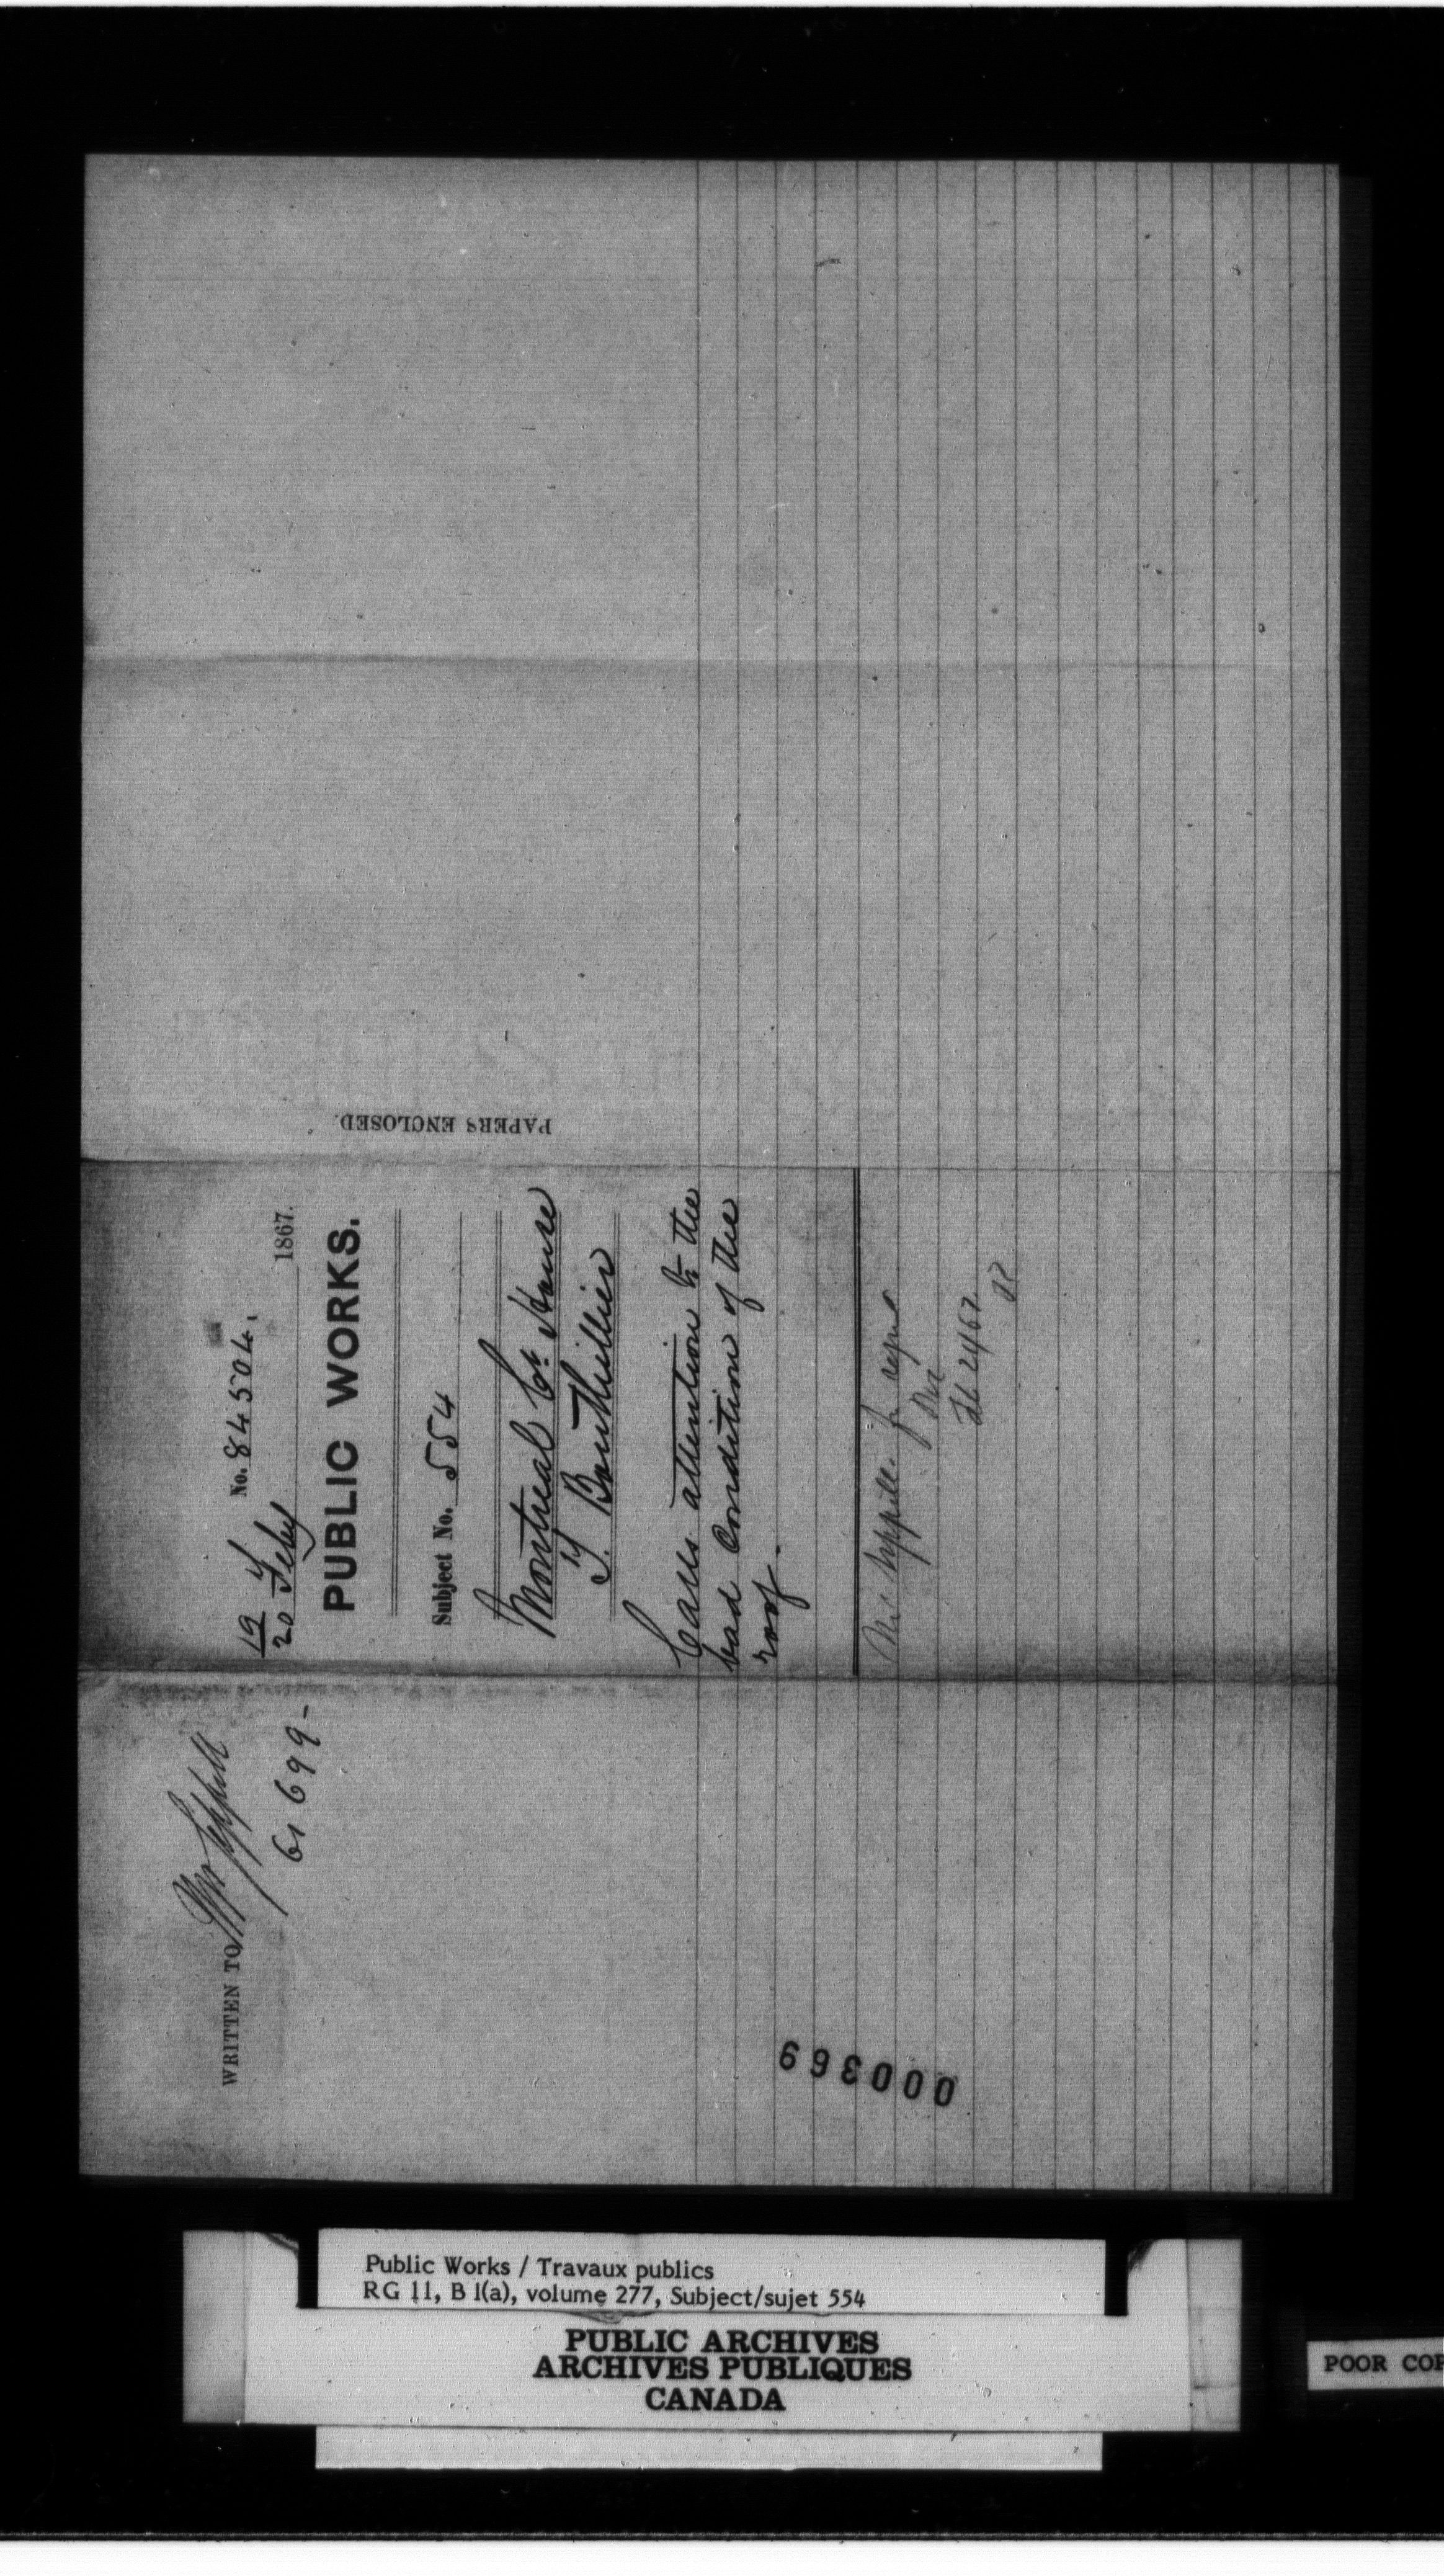 WRITTEN TO
61699-
No. 84504.
19
20 Feby 1867.
PUBLIC WORKS.
Subject No. 554
Montreal Ct. House
T. Bouthillier
Calls attention to the
bad Condition of the
roof.
Mr
Feb 24 67
PAPERS ENCLOSED.
000369
Public Works / Travaux publics
RG 11, B 1(a), volume 277, Subject/sujet 554
PUBLIC ARCHIVES
ARCHIVES PUBLIQUES
CANADA
POOR COP